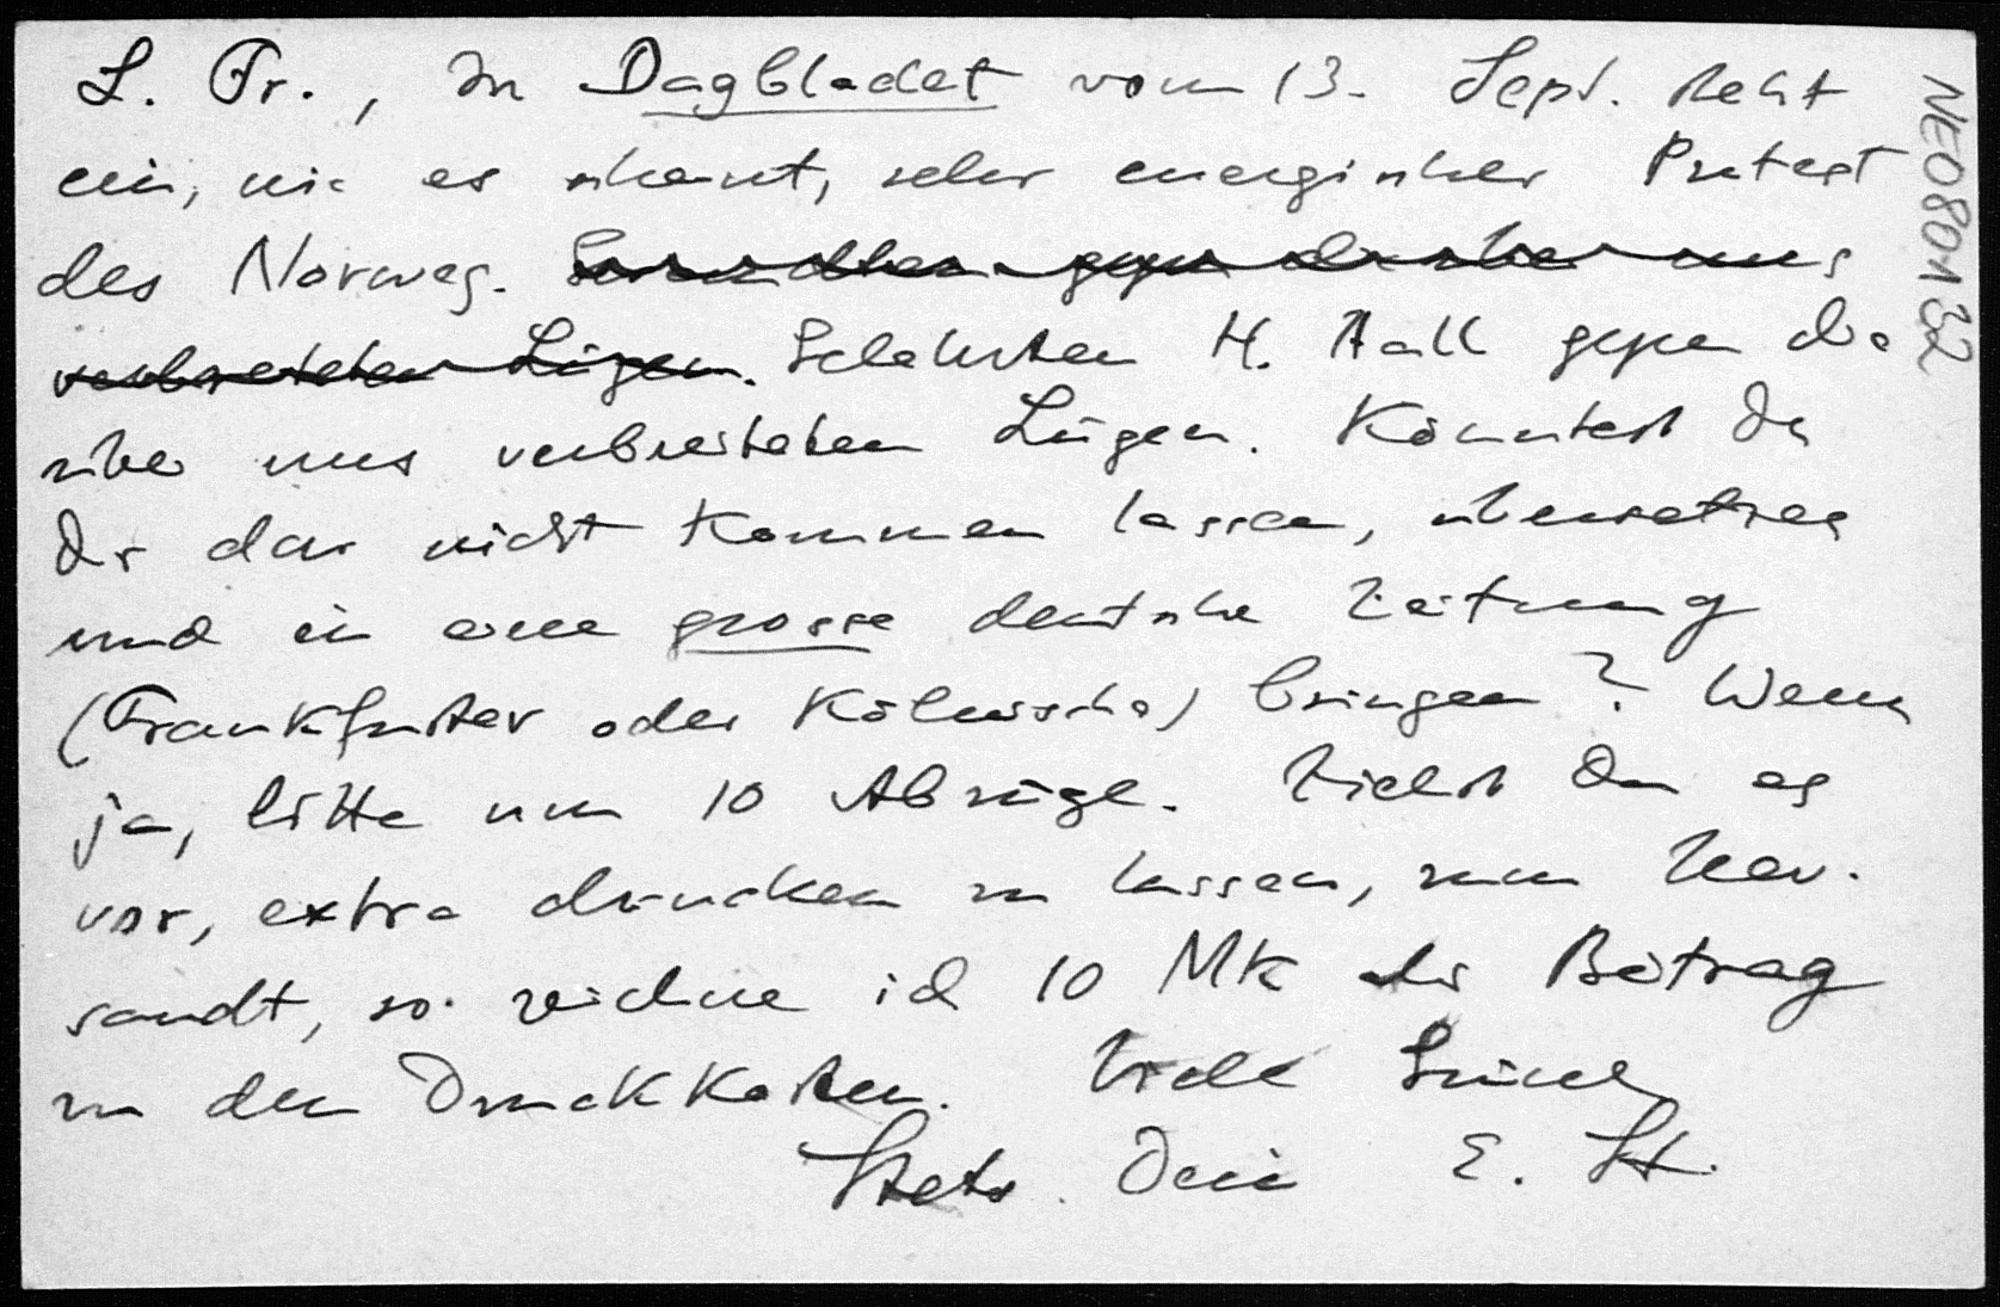 L. Fr., In Dagbladet vom 13. Sept. steht
ein, wie es scheint, sehr energischer Protest
des Norweg. gegen die über uns
verbreiteten Lügen. Gelehrten H. Aall gegen die
über uns verbreiteten Lügen. Könntest Du
Dir das nicht kommen lassen, übersetzen
und in eine grosse deutsche Zeitung
(Frankfurter oder Kölnische) bringen? Wenn
ja, bitte um 10 Abzüge. Ziehst Du es
vor, extra drucken zu lassen, zum Ver-
sandt, so zeichne ich 10 Mk als Beitrag
zu den Druckkosten. Viele Grüsse
Stets Dein E. St.
NE080132